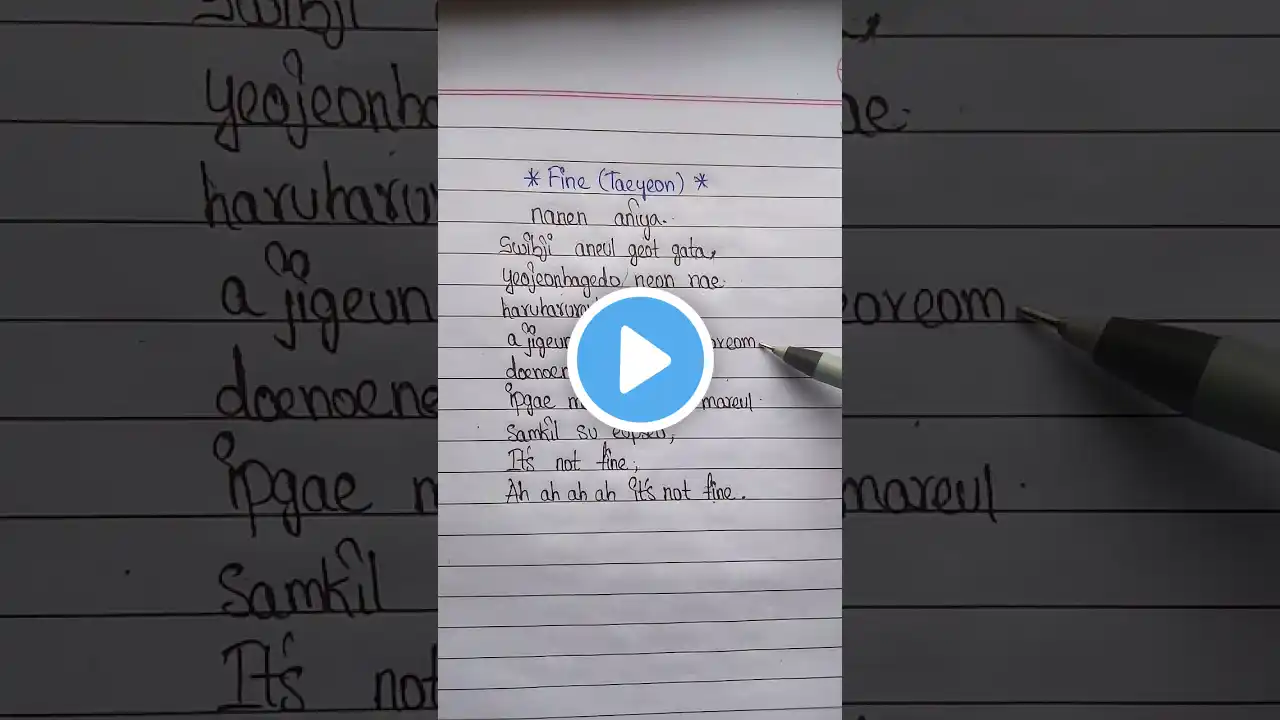 * Fine (Taeyeon) *
nanen aniya..
Swibji aneul geot gata,
yeojeonhagedo neon nae.
haruharur
a jigeun oreom
doenoen
ipgae m mareul.
Samkil su eopseo,
It's not fine,
Ah ah ah ah it's not fine.